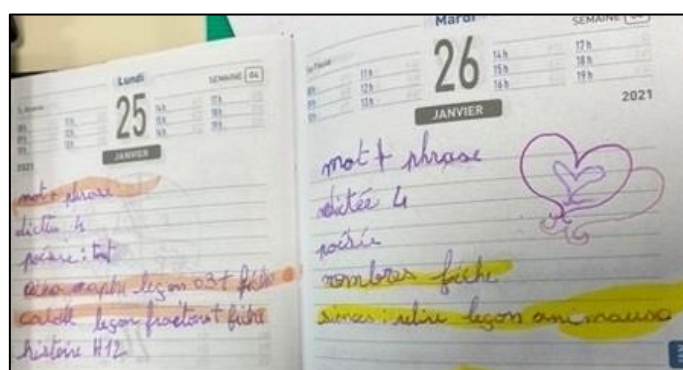 Lundi
SEMAINE 04
25
JANVIER
2021
mot + phrase
dictée 4
poésie : tout
leçon 03 + fiche
calcul leçon fractions + fiche
histoire H12
Mardi
SEMAINE
26
11h
12h
13h
14h
15h
16h
17h
18h
19h
JANVIER
2021
mot + phrase
dictée 4
poésie
nombres fiche
siences : relire leçon animaux